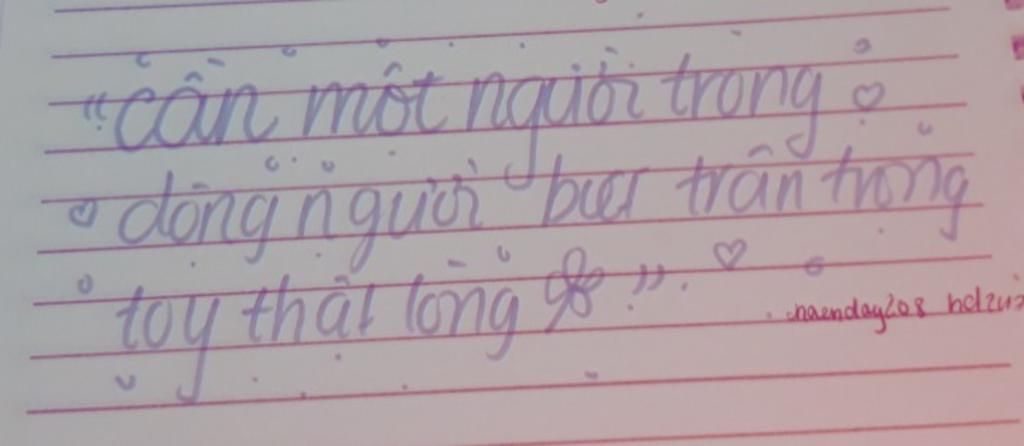 "cần một người trong
dòng người biết trân trọng
toy thật lòng".
naenday208